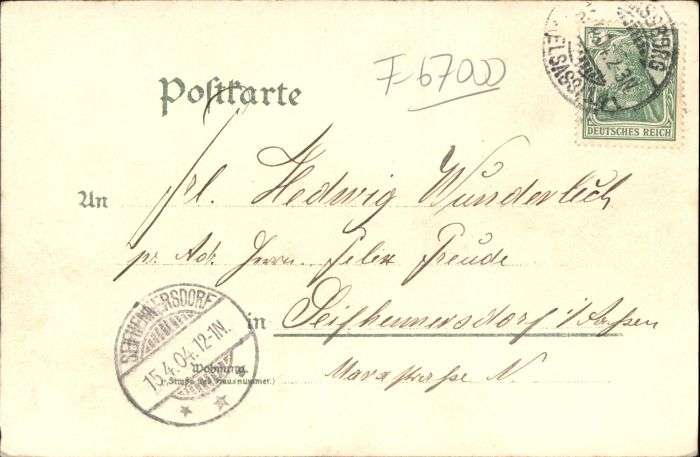 F-67000
STRASSBURG
ELSASS
DEUTSCHES REICH
Postkarte
An Frl. Hedwig Wunderlich
pr. Adr. Herrn Felix Freude
in Seifhennersdorf i/Sachsen
SEIFHENNERSDORF
15.4.04.12-1N.
Wohnung
(Straße und Hausnummer.)